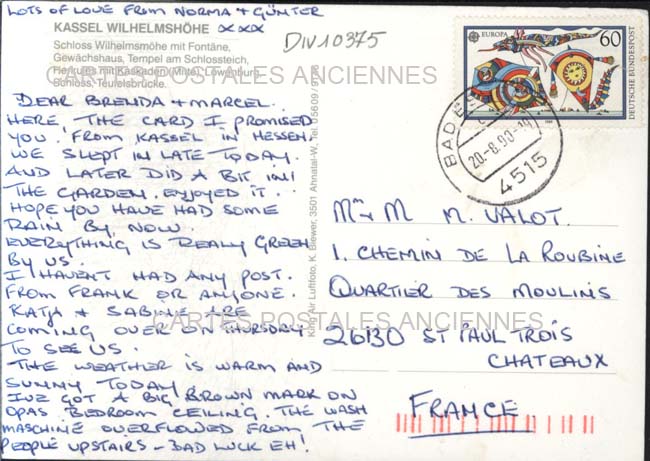 LOTS OF LOVE FROM NORMA + GÜNTER
xxx
KASSEL WILHELMSHÖHE
Schloss Wilhelmshöhe mit Fontäne,
Gewächshaus, Tempel am Schlossteich,
Herkules mit Kaskaden (Mitte), Löwenburg,
Schloss, Teufelsbrücke.
DIV10375
DEAR BRENDA + MARCEL.
HERE, THE CARD I PROMISED
YOU. FROM KASSEL IN HESSEN.
WE SLEPT IN LATE TODAY.
AND LATER DID A BIT IN
THE GARDEN. ENJOYED IT.
HOPE YOU HAVE HAD SOME
RAIN BY NOW.
EVERYTHING IS REALLY GREEN
BY US.
I HAVENT HAD ANY POST.
FROM FRANK OR ANYONE.
KATJA + SABINE ARE
COMING OVER ON THURSDAY
TO SEE US.
THE WEATHER IS WARM AND
SUNNY TODAY
IVE GOT A BIG BROWN MARK ON
OPAS BEDROOM CEILING. THE WASH
MASCHINE OVERFLOWED FROM THE
PEOPLE UPSTAIRS - BAD LUCK EH!
Luftfoto, K. Brewer, 3501 Ahnatal-W., Tel. 05609/
EUROPA
60
DEUTSCHE BUNDESPOST
BAD
20-8.90-19
4515
M. VALOT.
1. CHEMIN DE LA ROUBINE
QUARTIER DES MOULINS
26130 ST PAUL TROIS
CHATEAUX
FRANCE
CARTES POSTALES ANCIENNES
CARTES POSTALES ANCIENNES